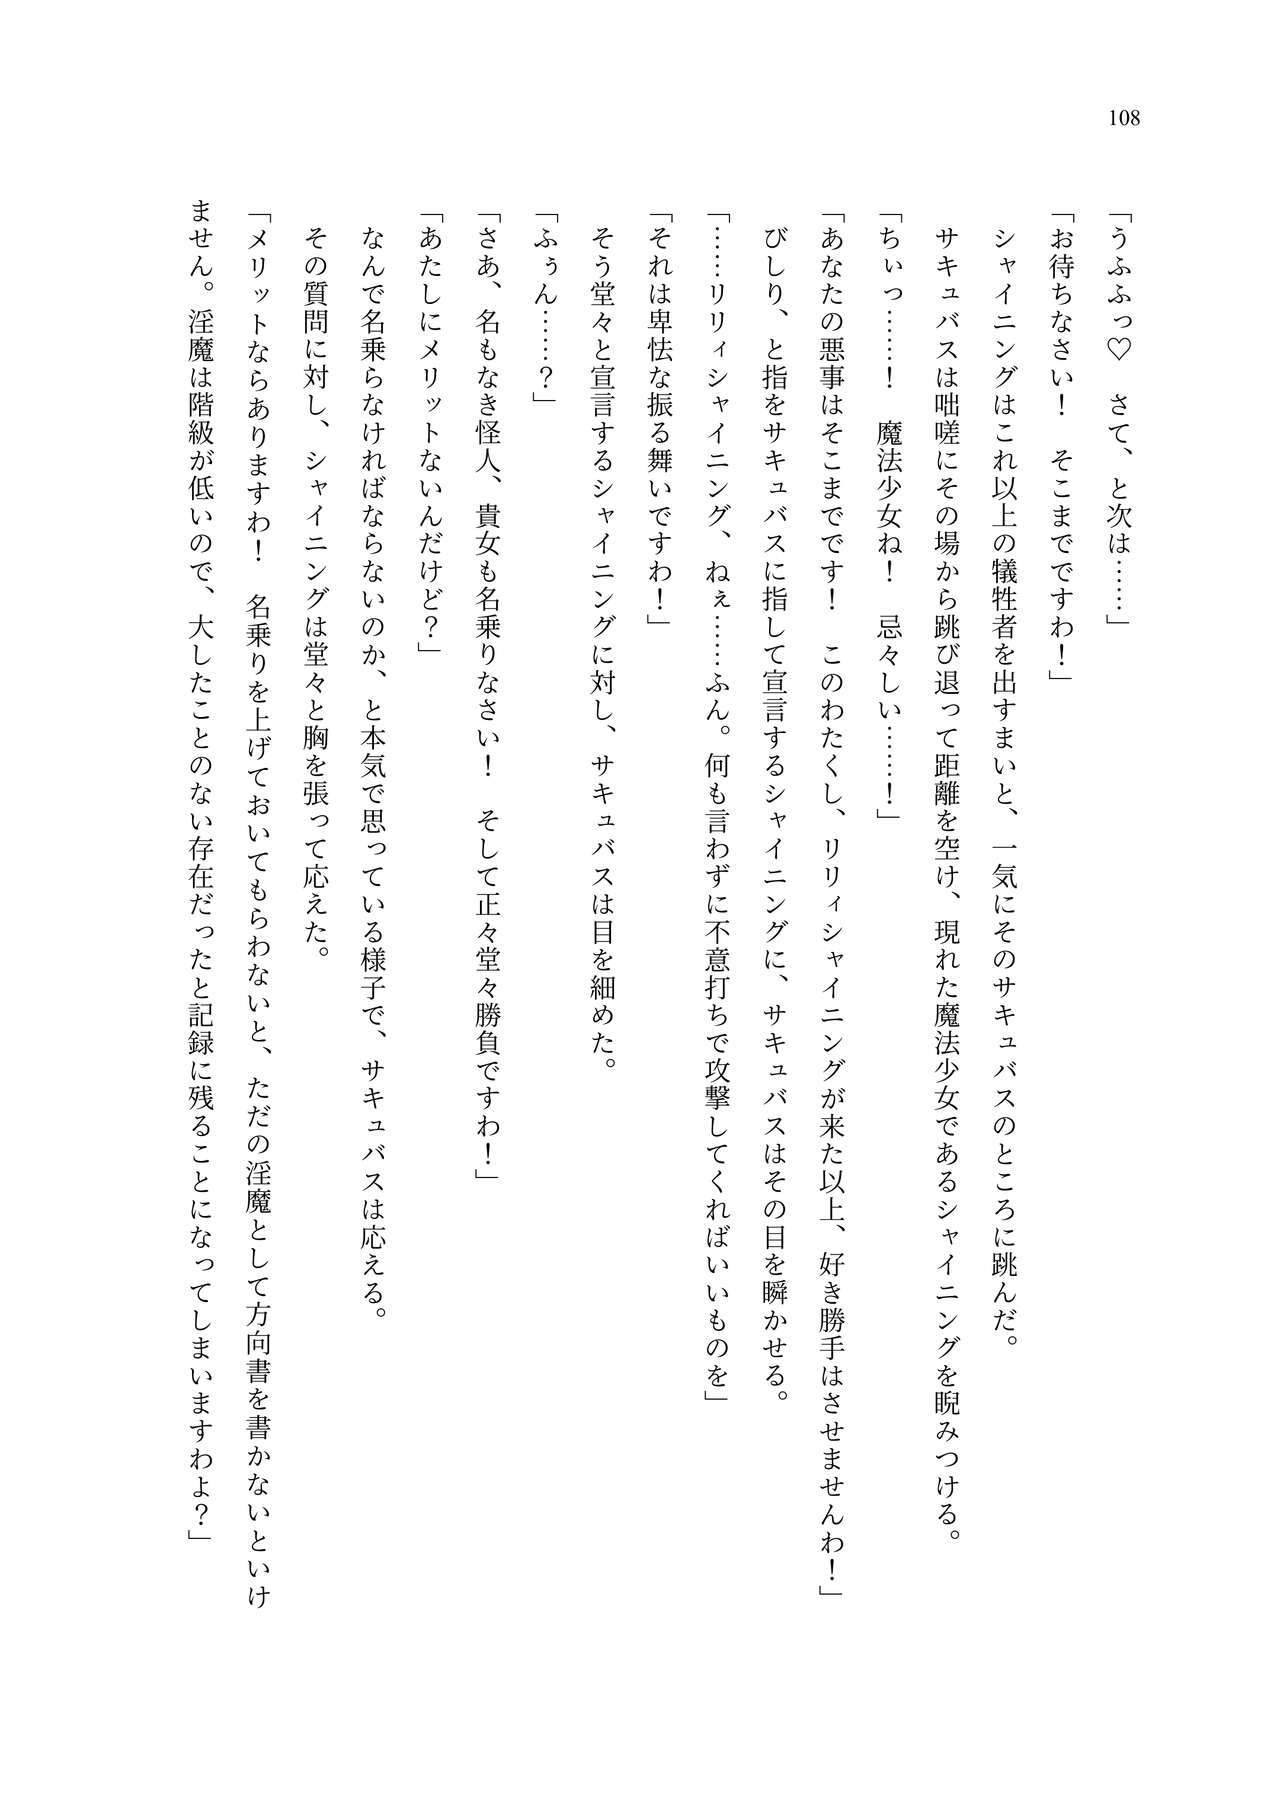 108
「うふふっ♡　さて、と次は……」
「お待ちなさい！　そこまでですわ！」
　シャイニングはこれ以上の犠牲者を出すまいと、一気にそのサキュバスのところに跳んだ。
　サキュバスは咄嗟にその場から跳び退って距離を空け、現れた魔法少女であるシャイニングを睨みつける。
「ちぃっ……！　魔法少女ね！　忌々しい……！」
「あなたの悪事はそこまでです！　このわたくし、リリィシャイニングが来た以上、好き勝手はさせませんわ！」
　びしり、と指をサキュバスに指して宣言するシャイニングに、サキュバスはその目を瞬かせる。
「……リリィシャイニング、ねぇ……ふん。何も言わずに不意打ちで攻撃してくればいいものを」
「それは卑怯な振る舞いですわ！」
　そう堂々と宣言するシャイニングに対し、サキュバスは目を細めた。
「ふぅん……？」
「さあ、名もなき怪人、貴女も名乗りなさい！　そして正々堂々勝負ですわ！」
「あたしにメリットないんだけど？」
　なんで名乗らなければならないのか、と本気で思っている様子で、サキュバスは応える。
　その質問に対し、シャイニングは堂々と胸を張って応えた。
「メリットならありますわ！　名乗りを上げておいてもらわないと、ただの淫魔として方向書を書かないといけ
ません。淫魔は階級が低いので、大したことのない存在だったと記録に残ることになってしまいますわよ？」